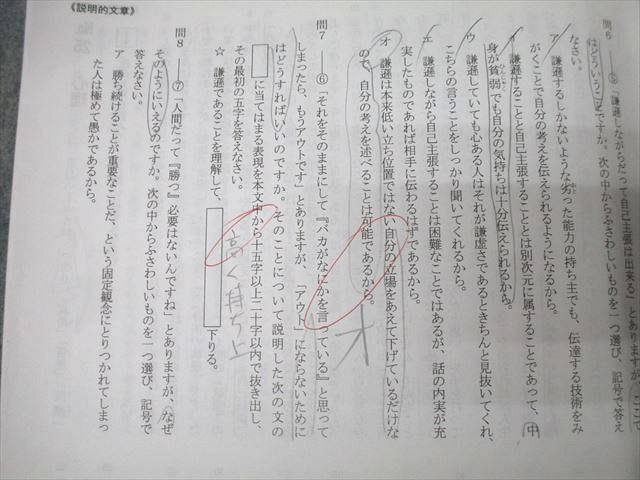 《説明的文章》
問6 ――⑤「謙遜しながらだって自己主張は出来る」とありますが、ここで
はどういうことですか。次の中からふさわしいものを一つ選び、記号で答え
なさい。
ア 謙遜するしかないような劣った能力の持ち主でも、伝達する技術をみ
がくことで自分の考えを伝えられるようになるから。
イ 謙遜することと自己主張することとは別次元に属することであって、中
身が貧弱でも自分の気持ちは十分伝えられるから。
ウ 謙遜していても心ある人はそれが謙虚さであるときちんと見抜いてくれ、
こちらの言うことをしっかり聞いてくれるから。
エ 謙遜しながら自己主張することは困難なことではあるが、話の内実が充
実したものであれば相手に伝わるはずであるから。
オ 謙遜は本来低い立ち位置ではない自分の立場をあえて下げているだけな
ので、自分の考えを述べることは可能であるから。
オ
問7 ――⑥「それをそのままにして『バカがなにかを言っている』と思って
しまったら、もうアウトです」とありますが、「アウト」にならないために
はどうすればいいのですか。そのことについて説明した次の文の
に当てはまる表現を本文中から十五字以上二十字以内で抜き出し、
その最初の五字を答えなさい。
☆ 謙遜であることを理解して、
下りる。
高く持ち上
問8 ――⑦「人間だって『勝つ』必要はないんですね」とありますが、なぜ
そのようにいえるのですか。次の中からふさわしいものを一つ選び、記号で
答えなさい。
ア 勝ち続けることが重要なことだ、という固定観念にとりつかれてしまっ
た人は極めて愚かであるから。